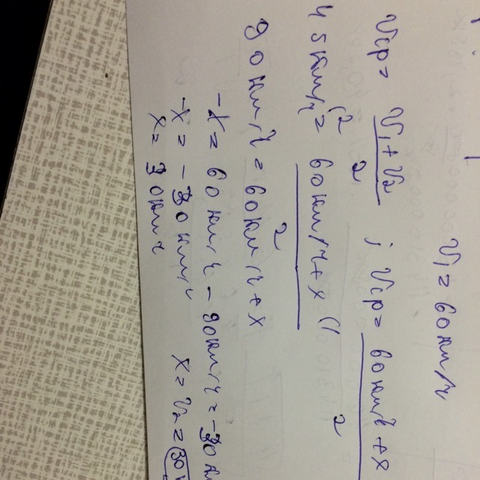 V₁ = 60 км/ч
Vср = V₁ + V₂ / 2 ; Vср = 60 км/ч + x / 2
45 км/ч = 60 км/ч + x / 2 (·2
90 км/ч = 60 км/ч + x
-x = 60 км/ч - 90 км/ч = -30 км
-x = -30 км/ч
x = 30 км/ч x = V₂ = 30